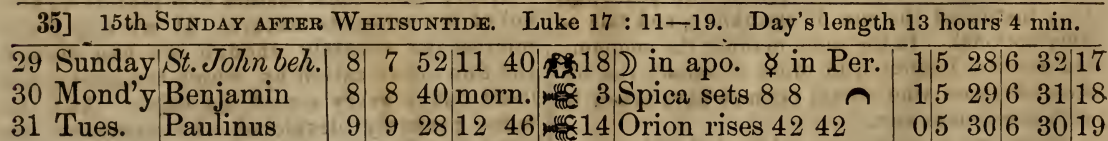 35] 15th Sunday after Whitsuntide. Luke 17 : 11—19. Day's length 13 hours 4 min.
29 Sunday St. John beh. 8 7 52 11 40 18 ☽ in apo. ☿ in Per. 1 5 28 6 32 17
30 Mond'y Benjamin 8 8 40 morn. 3 Spica sets 8 8 1 5 29 6 31 18
31 Tues. Paulinus 9 9 28 12 46 14 Orion rises 42 42 0 5 30 6 30 19